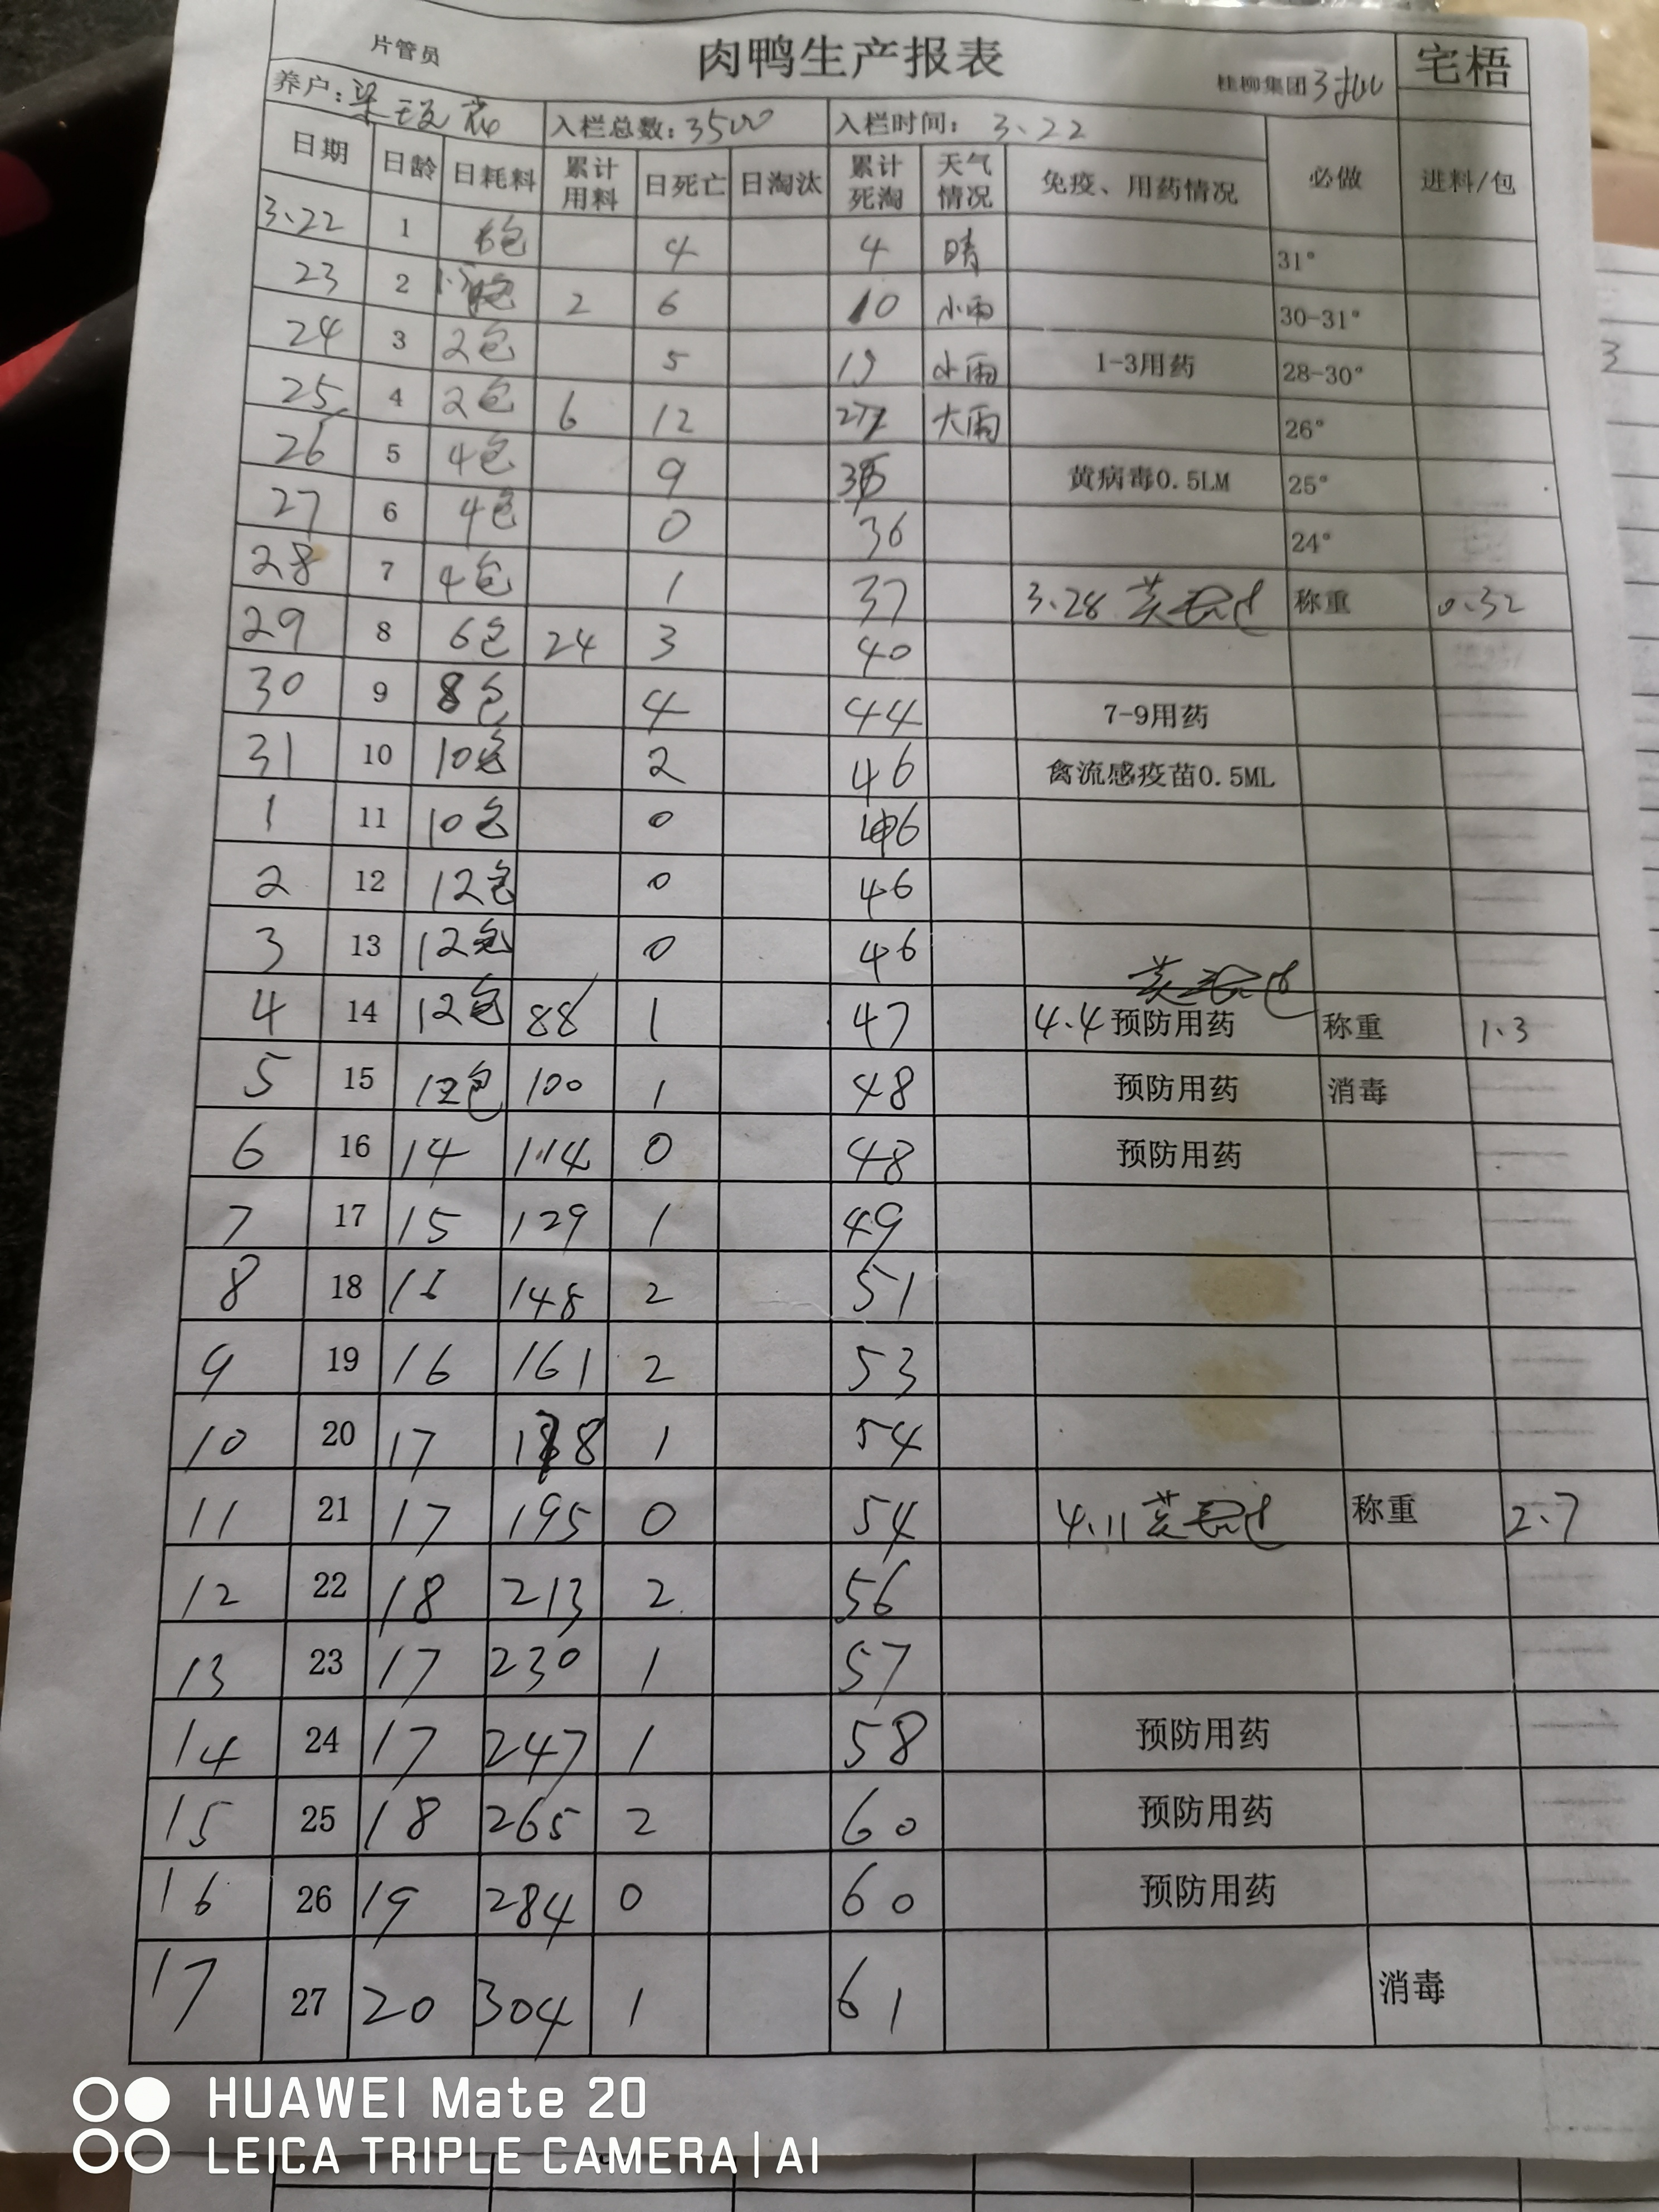 片管员 肉鸭生产报表 桂柳集团 宅梧
养户: 入栏总数:3500 入栏时间: 3.22
日期 日龄 日耗料 累计用料 日死亡 日淘汰 累计死淘 天气情况 免疫、用药情况 必做 进料/包
3.22 1 包 4 4 晴 31°
23 2 2 6 10 小雨 30-31°
24 3 2包 5 小雨 1-3用药 28-30°
25 4 2包 6 12 大雨 26°
26 5 4包 9 黄病毒0.5LM 25°
27 6 4包 0 36 24°
28 7 4包 1 37 3.28 称重 0.32
29 8 6包 24 3 40
30 9 8包 4 44 7-9用药
31 10 10包 2 46 禽流感疫苗0.5ML
1 11 10包 0 46
2 12 12包 0 46
3 13 12包 0 46
4 14 12包 88 1 47 4.4 预防用药 称重 1.3
5 15 12包 100 1 48 预防用药 消毒
6 16 14 114 0 48 预防用药
7 17 15 129 1 49
8 18 16 148 2 51
9 19 16 161 2 53
10 20 17 1 54
11 21 17 195 0 54 4.11 称重 2.7
12 22 18 213 2 56
13 23 17 230 1 57
14 24 17 247 1 58 预防用药
15 25 18 265 2 60 预防用药
16 26 19 284 0 60 预防用药
17 27 20 304 1 61 消毒
HUAWEI Mate 20
LEICA TRIPLE CAMERA | AI